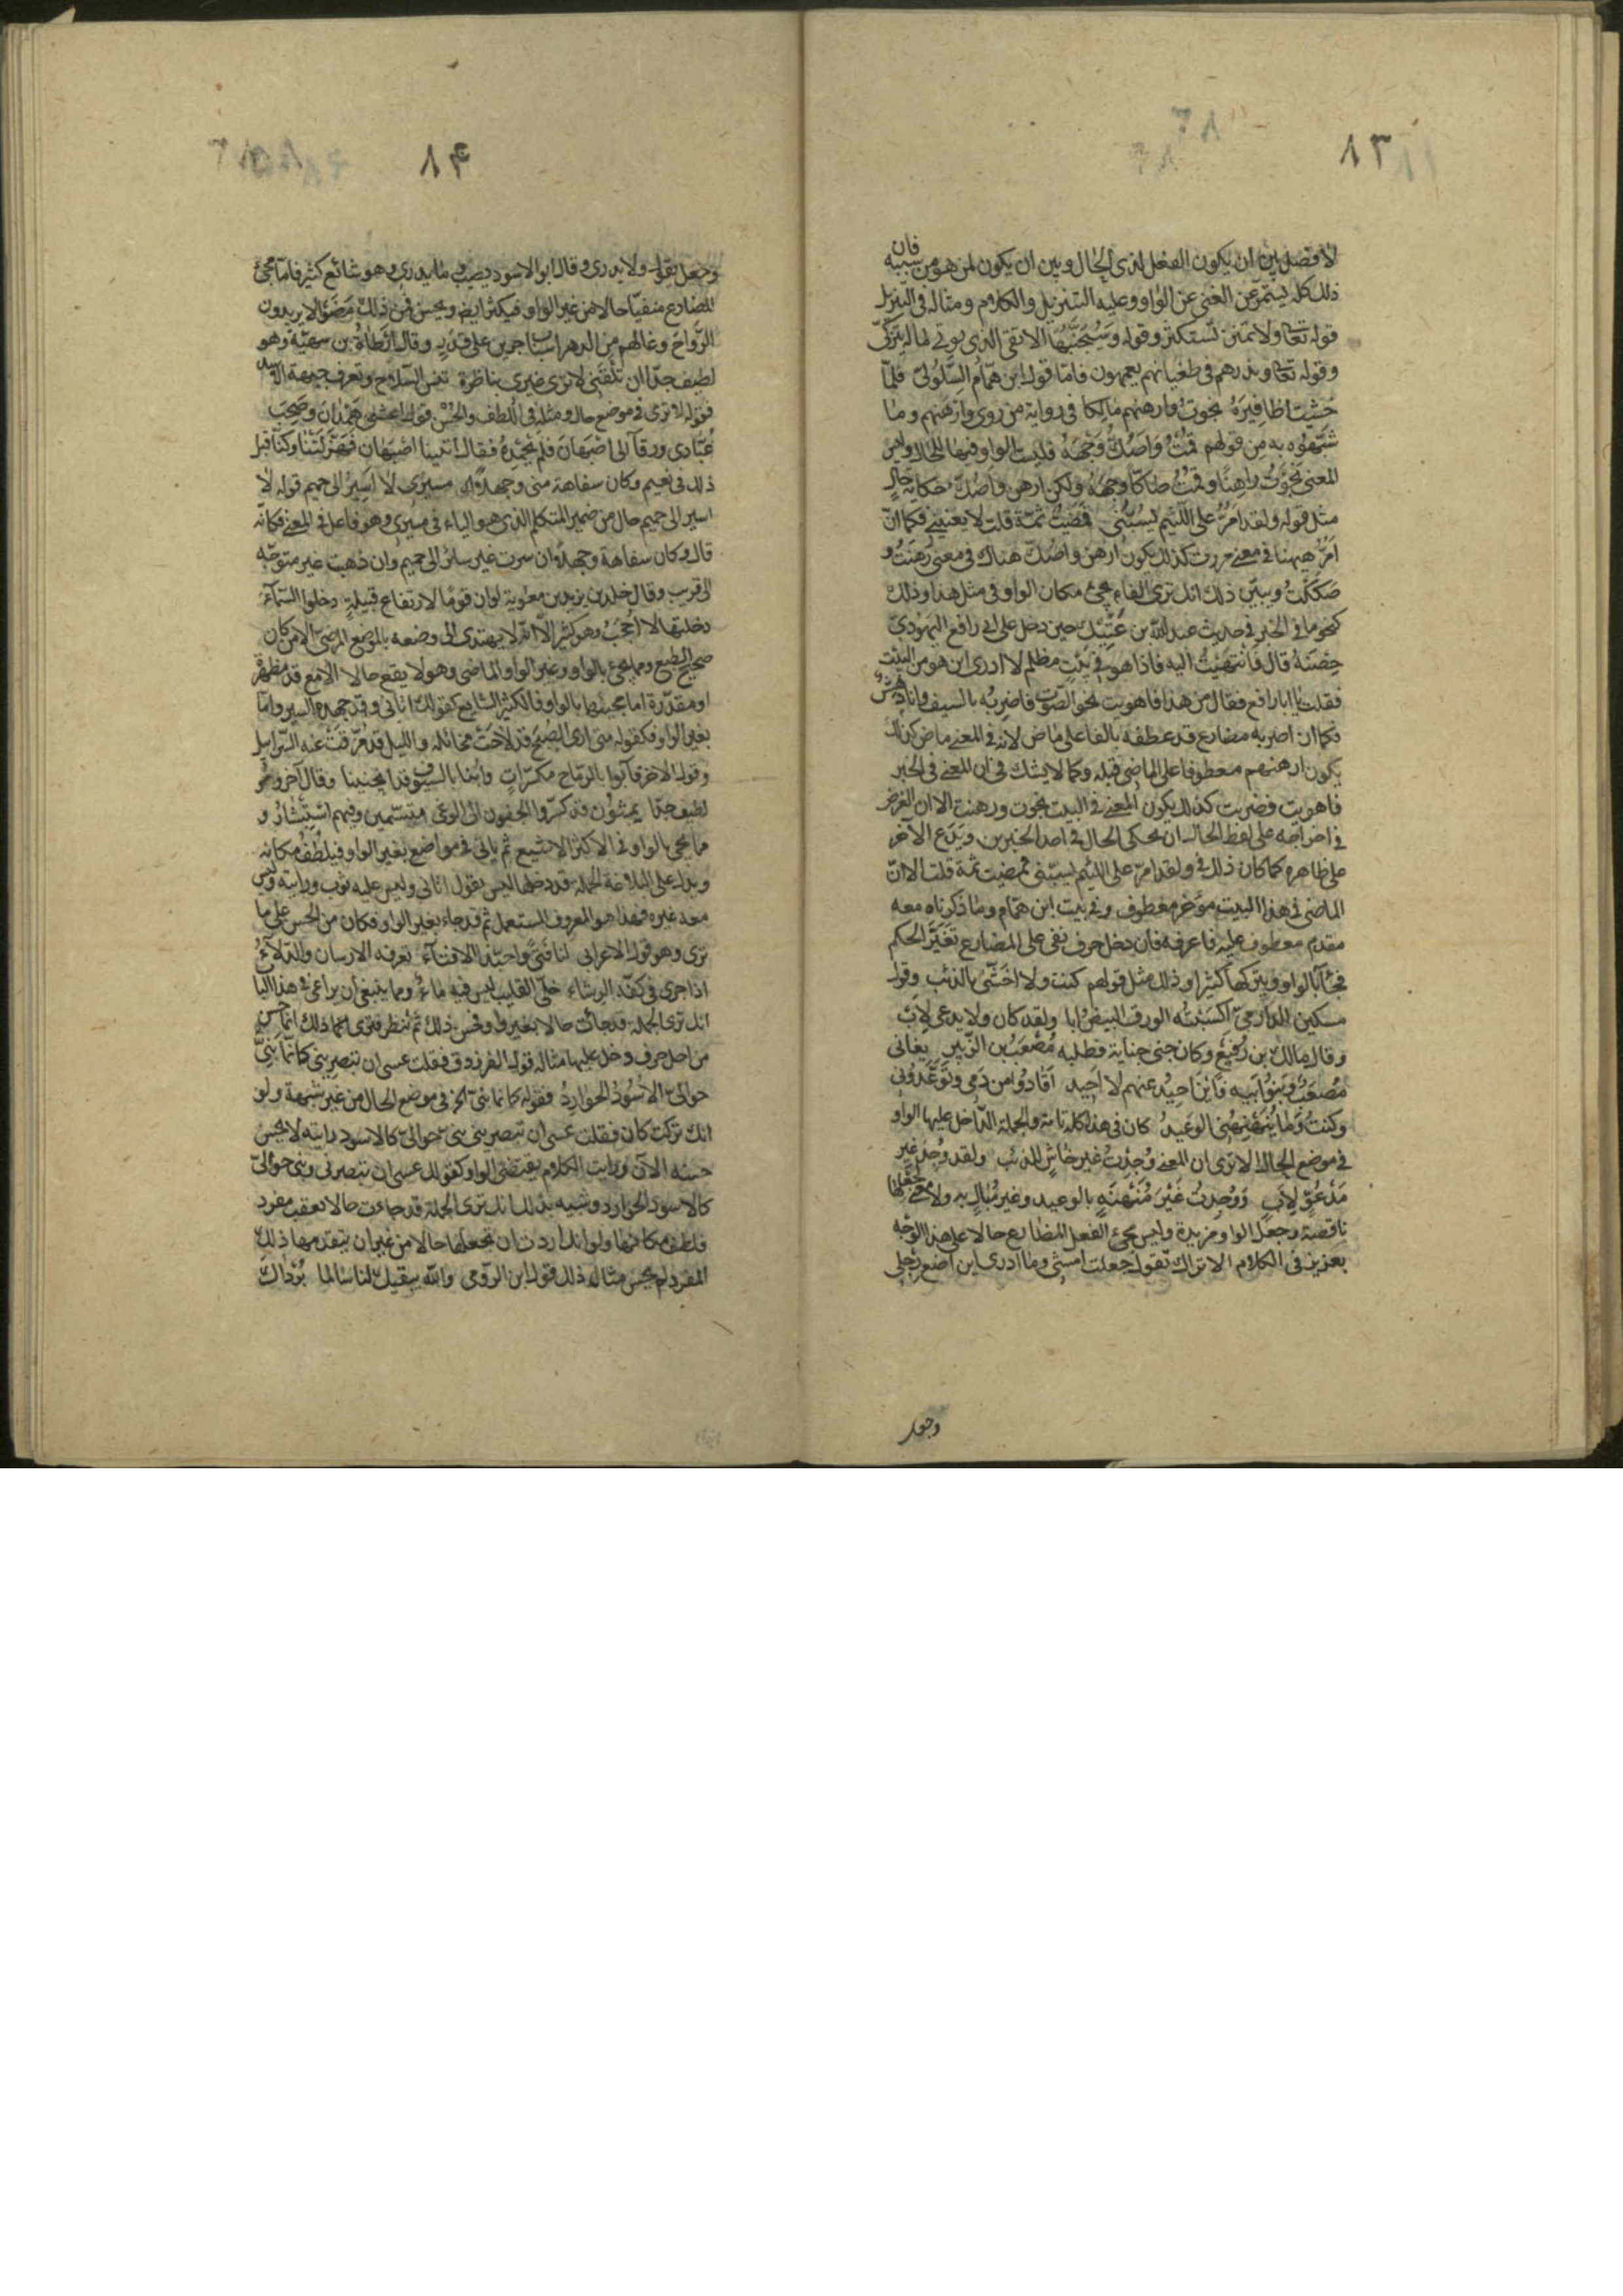 ٨٣
لا فصل بين ان يكون الفعل لذى الحال وبين ان يكون لمن هو من سببه فان
ذلك كله يستمرّ عن الغنى عن الواو وعليه التنزيل والكلام ومثاله فى التنزيل
قوله تعالى ولا تمنن تستكثر وقوله وسيجنّبها الاتقى الذى يوتى ماله يتزكّى
وقوله تعالى ويذرهم فى طغيانهم يعمهون فامّا قول ابن همّام السّلولىّ فلمّا
خشيت اظافيره نجوت وارهنهم مالكا فى رواية من روى وارهنهم وما
شبّهوه به من قولهم قمت واصكّ وجهه فليست الواو فيها للحال وليس
المعنى نجوت راهنا وقمت صاكّا وجهه ولكن ارهن واصكّ حكاية حال
مثل قوله ولقد امرّ على اللئيم يسبّنى فمضيت ثمّة قلت لا يعنينى فكما انّ
امرّ ههنا فى معنى مررت كذلك يكون ارهن واصكّ هناك فى معنى رهنت و
صككت ويبيّن ذلك انك ترى الفاء يجئ مكان الواو فى مثل هذا وذلك
كنحو ما فى الخبر فى حديث عبد الله بن عتيك حين دخل على ابى رافع اليهودىّ
حصنه قال فانتهيت اليه فاذا هو فى بيت مظلم لا ادرى اين هو من البيت
فقلت يا ابا رافع فقال من هذا فاهويت نحو الصّوت فاضربه بالسيف وانا دهش
فكما ان اضربه مضارع قد عطفه بالفا على ماض لانه فى المعنى ماض كذلك
يكون ارهنهم معطوفا على الماضى قبله وكما لا يشك فى ان المعنى فى الخبر
فاهويت فضربت كذلك يكون المعنى فى البيت نجوت ورهنت الا ان الغرض
فى اخراجه على لفظ الحال ان يحكى الحال فى احد الخبرين ويدع الاخر
على ظاهره كما كان ذلك فى ولقد امرّ على اللئيم يسبّنى فمضيت ثمّة قلت الا انّ
الماضى فى هذا البيت مؤخر معطوف وفى بيت ابن همّام وما ذكرناه معه
مقدم معطوف عليه فاعرفه فان دخل حرف نفى على المضارع تغيّر الحكم
فجئ بالواو ويتركها كثيرا وذلك مثل قولهم كنت ولا اخشّى بالذئب وقول
مسكين الدارمىّ اكسبته الورق البيض ابا ولقد كان ولا يدعى لاب
وقال مالك بن رفيع وكان جنى جناية فطلبه مصعب بن الزّبير بغانى
مصعب وبنو ابيه فاين احيد عنهم لا احيد اقادوا من دمى وتوعّدونى
وكنت وما ينهنهنى الوعيد كان فى هذا كله تامة والجملة الدّاخل عليها الواو
فى موضع الحال الا ترى ان المعنى وجدت غير خاش للذئب ولقد وجد غير
مدعوّ لاب ووجدت غير منهنه بالوعيد وغير مبال به ولا معنى لجعلها
ناقصة وجعل الواو مزيدة وليس مجئ الفعل المضارع حالا على هذا الوجه
بعزيز فى الكلام الا تراك تقول جعلت امشى وما ادرى اين اضع رجلى
وجعل
٨۴
وجعل يقول ولا يدرى وقال ابو الاسود يصيب وما يدرى وهو شائع كثير فامّا مجئ
المضارع منفيّا حالا من غير الواو فيكثر ايضا ويحسن فمن ذلك مضوا لا يريدون
الرّواح وغالهم من الدهر اسباب جرين على قدر وقال ارطاة بن سهيّة وهو
لطيف جدّا ان تلقنى لا ترى غيرى بناظرة تنس السّلاح وتعرف جبهة الاسد
فقوله لا ترى فى موضع حال ومثله فى اللطف والحسن قول اعشى همدان وصحب
عبّاد بن ورقآ الى اصبهان فلم يحمده فقال اتينا اصبهان فهزلتنا وكنّا قبل
ذلك فى نعيم وكان سفاهة منى وجهلا مسيرى لا اسير الى حميم قوله لا
اسير الى حميم حال من ضمير المتكلم الذى هو الياء فى مسيرى وهو فاعل فى المعنى فكانّه
قال وكان سفاهة وجهلا ان سرت غير سائر الى حميم وان ذهبت غير متوجّه
الى قريب وقال خلد بن يزيد بن معوية لو ان قوما لارتفاع قبيلة دخلوا السّمآء
دخلتها لا احجب وهو كثير الّا انّه لا يهتدى الى وضعه بالموضع المرضىّ الا من كان
صحيح الطبع ومما يجئ بالواو وغير الواو الماضى وهو لا يقع حالا الا مع قد مظهرة
او مقدّرة اما مجيئها بالواو فالكثير الشايع كقولك اتانى وقد جهده السير وامّا
بغير الواو فكقوله متى ارى الصّبح قد لاحت مخائله والليل قد مزّقت عنه السّرابيل
وقول الاخر فآبوا بالرّماح مكسّرات وابنا بالسيوف قد انحنينا وقال آخر وهو
لطيف جدّا يمشون قد كسّروا الجفون الى الوغى متبسّمين وفيهم استبشار و
مما يجى بالواو فى الاكثر الاشيع ثم ياتى فى مواضع بغير الواو فيلطف مكانه
ويدل على البلاغة الجملة قد دخلها ليس يقول اتانى وليس عليه ثوب ورايته وليس
معه غيره فهذا هو المعروف المستعمل ثم قد جاء بغير الواو فكان من الحسن على ما
ترى وهو قول الاعرابى لنا فتى وحبّذا الافتآء تعرفه الارسان والدّلآء
اذا جرى فى كفّه الرشاء خلّى القليب ليس فيه ماء ومما ينبغى ان يراعى فى هذا الباب
انك ترى الجملة قد جائت حالا بغير واو وحسن ذلك ثم تنظر فترى ذلك انما حسن
من اجل حرف دخل عليها مثاله قول الفرزدق فقلت عسى ان تبصرينى كانّما بنىّ
حوالىّ الاسود الحوارد فقوله كانما بنىّ الخ فى موضع الحال من غير شبهة ولو
انك تركت كان فقلت عسى ان تبصرينى بنىّ حوالىّ كالاسود رايته لا يحسن
حسنه الآن ورايت الكلام يقتضى الواو كقولك عسى ان تبصرينى وبنىّ حوالىّ
كالاسود الحوارد وشبيه بذلك انك ترى الجملة قد جاءت حالا بعقب مفرد
فلطف مكانها ولو انك اردت ان تجعلها حالا من غير ان يتقدمها ذلك
المفرد لم يحسن مثال ذلك قول ابن الرّومى والله يبقيك لنا سالما برداك